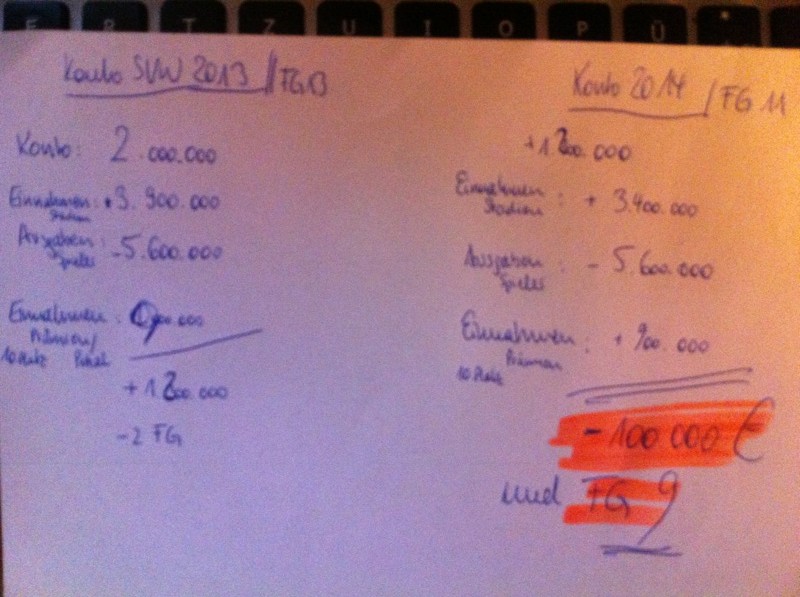 E R T Z U I O P Ü
Konto SVW 2013 // FG 13
Konto: 2.000.000
Einnahmen: +3.900.000
Stadion
Ausgaben: -5.600.000
Spieler
Einnahmen: 900.000
Prämien/
10 Platz Pokal
+1.200.000
-2 FG
Konto 2014 / FG 11
+1.200.000
Einnahmen: + 3.400.000
Stadion
Ausgaben: - 5.600.000
Spieler
Einnahmen: + 900.000
Prämien
10 Platz
- 100 000 €
und FG 9